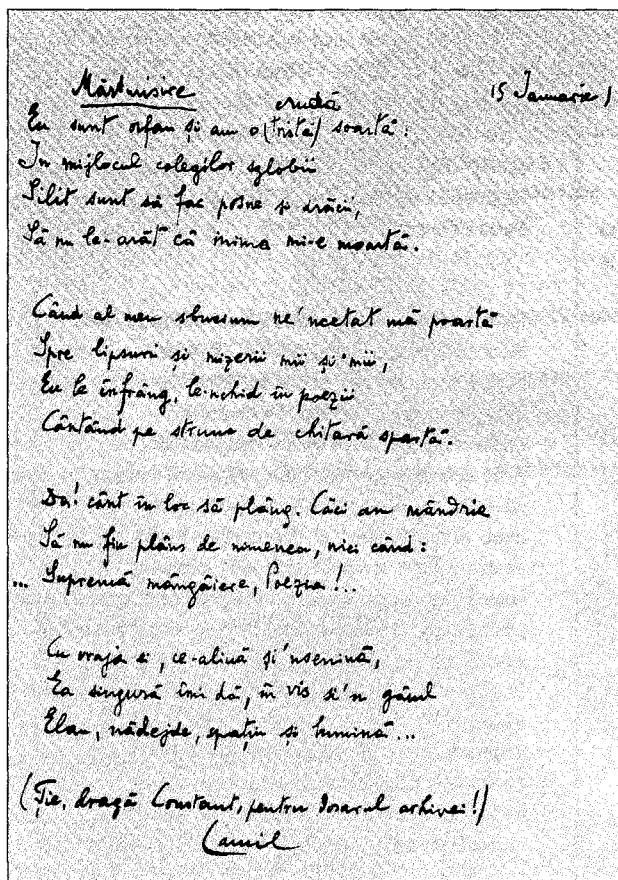 Mărturisire 15 Ianuarie
crudă
Eu sunt orfan și am o (tristă) soartă:
In mijlocul colegilor sglobii
Silit sunt să fac pozne și drăcii,
Să nu le-arăt că inima mi-e moartă.
Când al meu sbucium ne'ncetat mă poartă
Spre lipsuri și mizerii mii și mii,
Eu le înfrâng, le-nchid în poezii
Cântând pe struna de chitară spartă.
Da! cânt în loc să plâng. Căci am mândrie
Să nu fiu plâns de nimenea, nici când:
... Supremă mângâiere, Poezia!..
Cu vraja ei, ce-alină și'nsenină,
Ea singură îmi dă, în vis și'n gând
Elan, nădejde, spațiu și lumină...
(Ție, dragă Constant, pentru dosarul arhivei!)
Camil